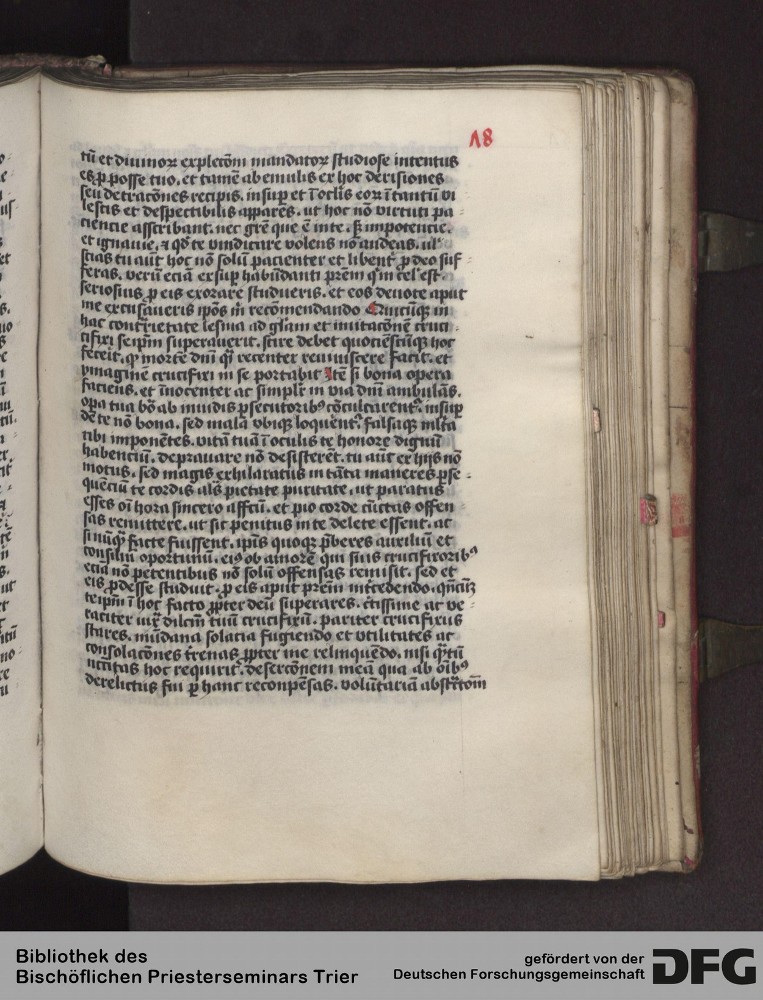 18
tū et diuinoꝝ expletōm mandatoꝝ studiose intentus
es ꝓ posse tuo. et tamē ab emulis ex hoc derisiones
seu detracōnes recipis. insuꝑ et ī oclīs eoꝝ ī tantū vi
lescis et despectibilis appares. ut hoc nō virtuti pa
ciencie asscribant. nec grē que ē in te. impotencie.
et ignauie. ꝗ te vindicare volens nō audeas.
tu aūt hoc nō solū pacienter et libent ꝓ deo suf
feras. verū eciā ex suꝑhabūdanti
seriosius ꝓ eis exorare studueris. et eos deuote aput
me excusaueris ip̄os recōmendando Quicūqꝫ in
hac cont̄rietate ad glām et imitacōnē cruci
fixi seip̄m superauerit. scire debet quotiēscūqꝫ hoc
fecerit. ꝙ mortē dnī recenter reuiuiscere facit. et
ymaginē crucifixi in se portabit Itē si bona opera
faciens. et īnocenter ac simplīr in via dnī ambulās.
oꝑa tua bō ab inuidis ꝑsecutoribꝰ cōculcarent. insuꝑ
de te nō bona. sed mala vbiqꝫ loquent. falsaqꝫ mlta
tibi imponētes. vitā tuā ī oculis te honore dignū
habenciū. deprauare nō desisterēt. tu aūt ex hijs nō
motus. sed magis exhilaratus in tāta maneres ꝑse
quenciū te cordis pietate puritate. ut paratus
esses oī hora sincero affcū. et pio corde cūctas offen
sas remittere. ut sic penitus in te delete essent. ac
si nūqꝫ facte fuissent. ip̄is quoqꝫ p̄beres auxiliū et
consiliū oportunū. eiꝰ ob amorē qui suis crucifixoribꝰ
ecia nō petentibus nō solū offensas remisit. sed et
eis ꝓdesse studuit. ꝓ eis aput prēm intcedendo.
teip̄m ī hoc facto ꝓpter deū superares. ctissime ac ve
raciter iux dilcm̄ tuū crucifixū. pariter crucifixus
stares. mūdana solacia fugiendo et vtilitates ac
consolacōnes t̄renas ꝓpter me relinquēdo. nisi
necc̄itas hoc requirit. desercōnem meā qua ab oībꝰ
derelictus fui ꝑ hanc reconpēsas. volūtariā
Bibliothek des
Bischöflichen Priesterseminars Trier
gefördert von der
Deutschen Forschungsgemeinschaft
DFG